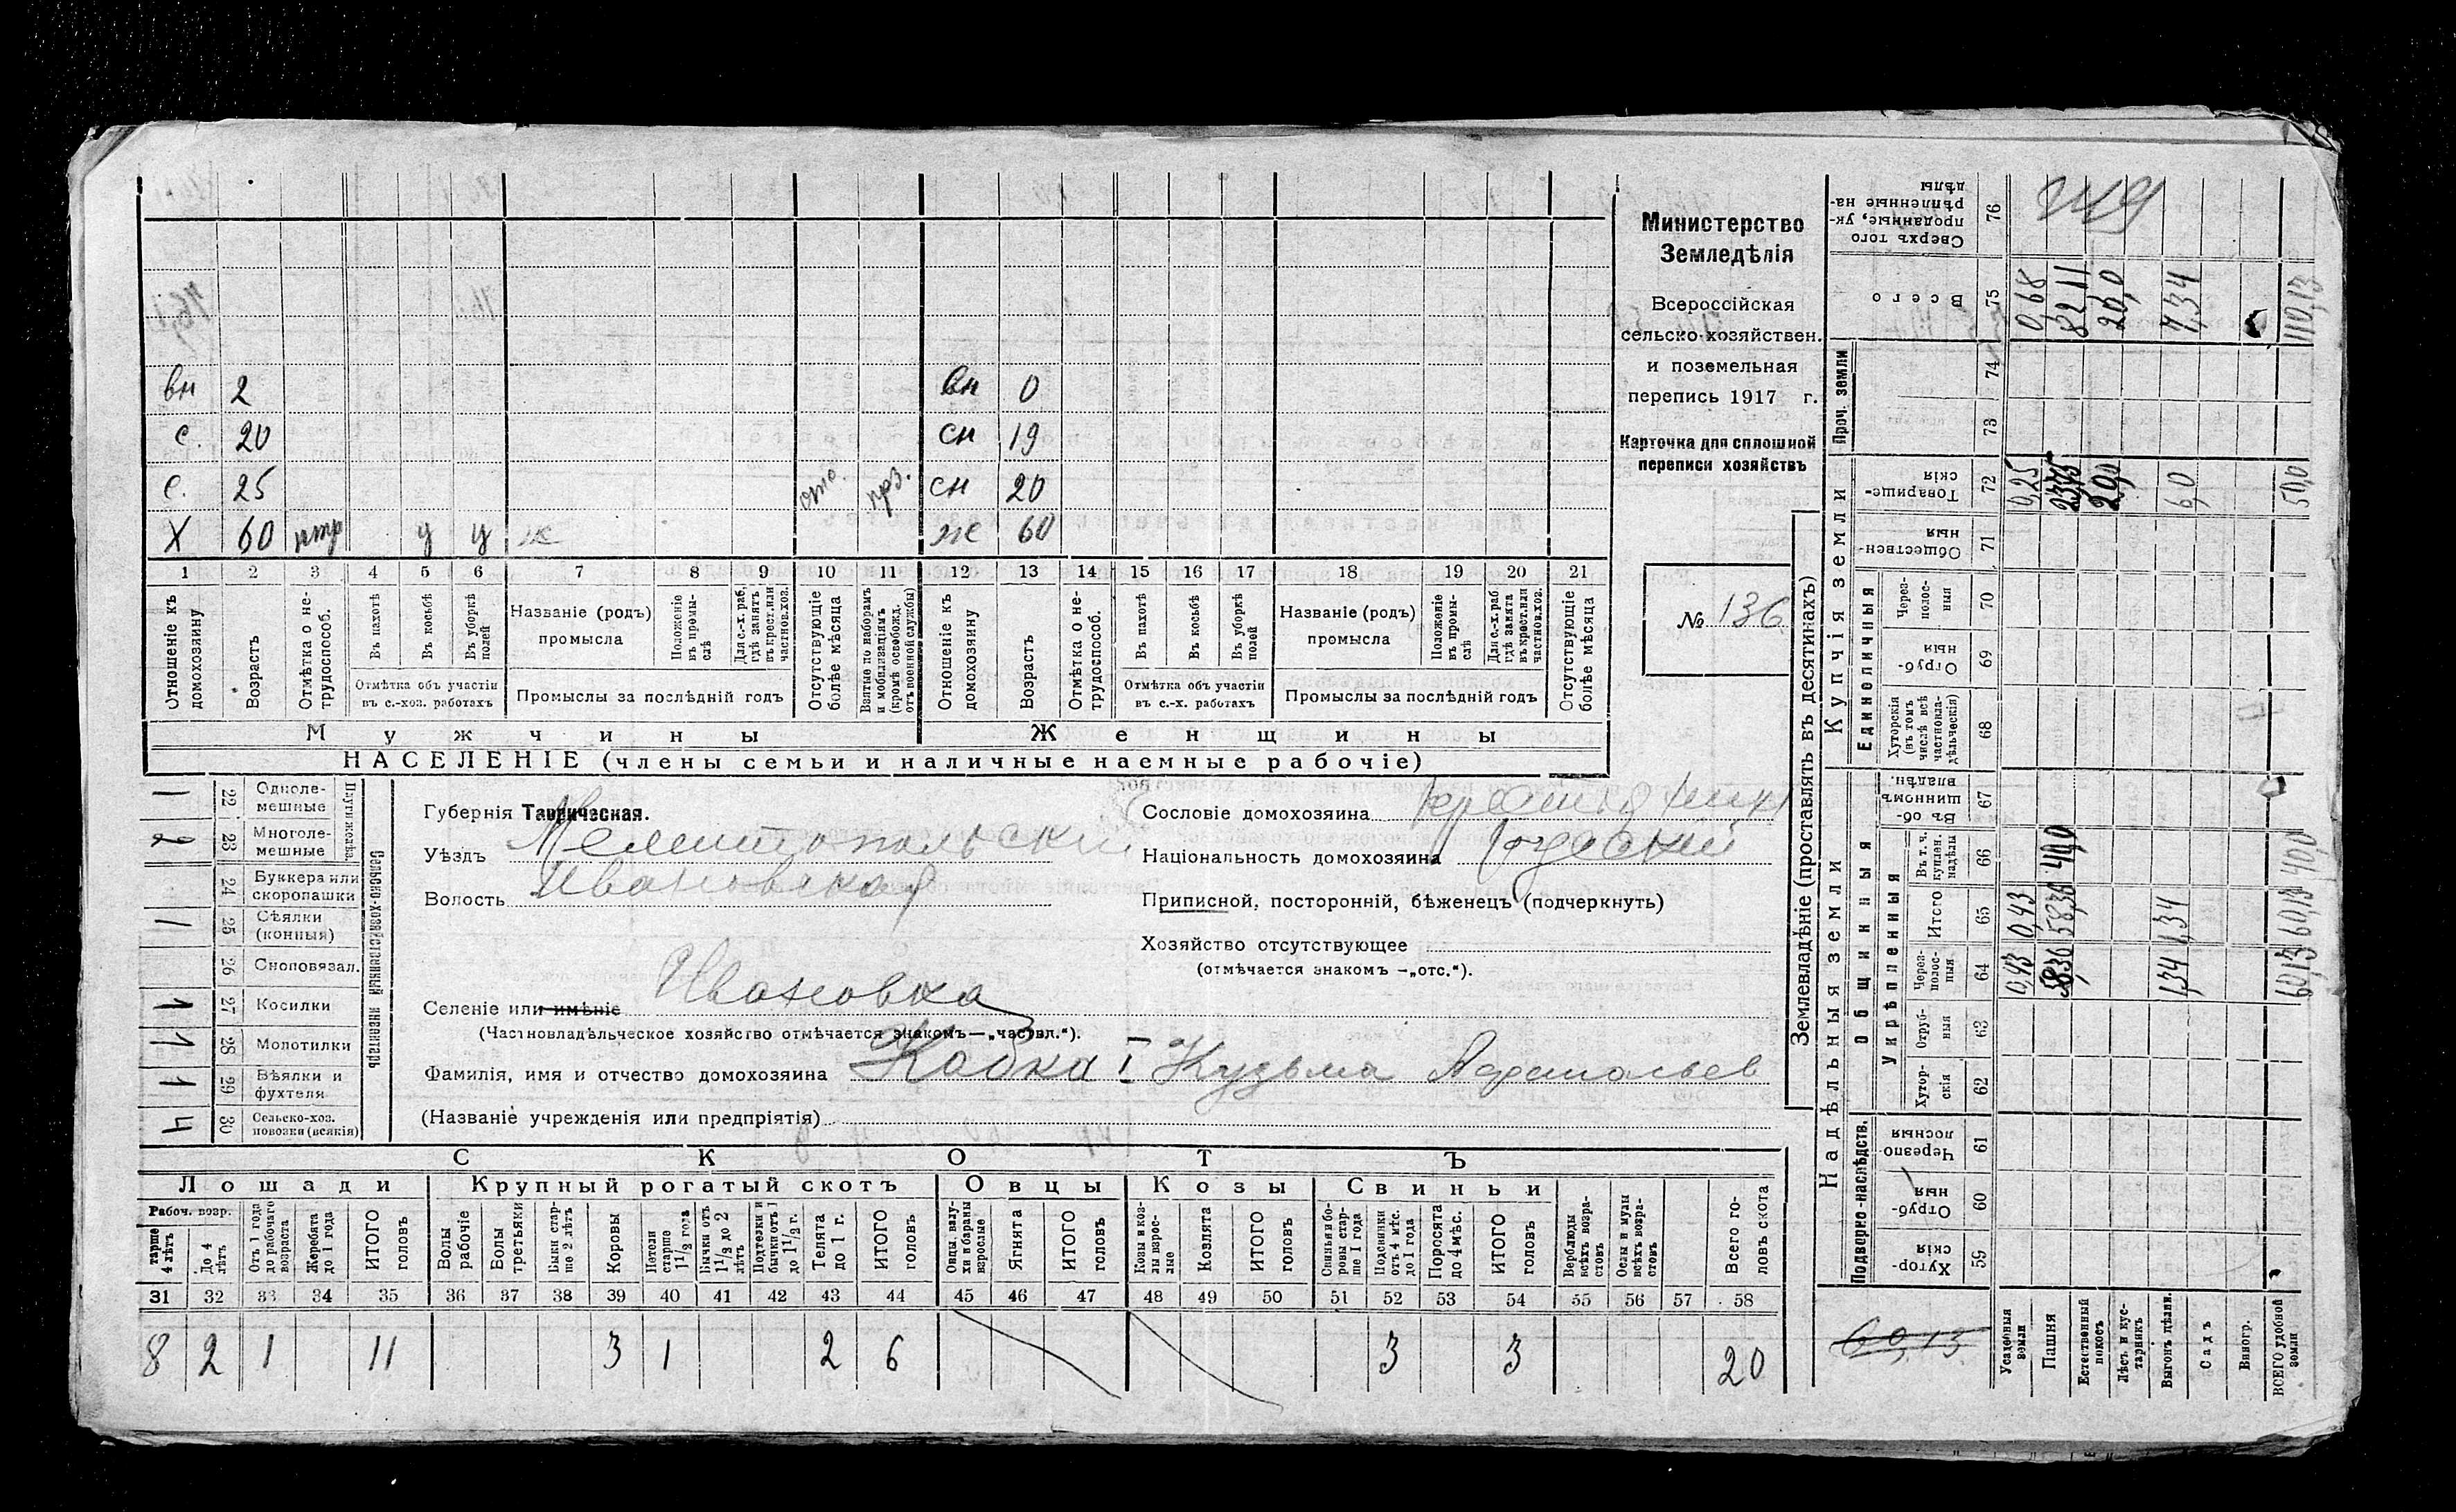 вн 2 вн 0
с. 20 сн 19
с. 25 отс. прз. сн 20
Х 60 нтр у у ж же 60
1 2 3 4 5 6 7 8 9 10 11 12 13 14 15 16 17 18 19 20 21
Отношеніе къ домохозяину
Возрастъ
Отмѣтка о не-трудоспособ.
Въ пахотѣ
Въ косьбѣ
Въ уборкѣ полей
Отмѣтка объ участіи
въ с.-хоз. работахъ
Названіе (родъ)
промысла
Положеніе въ промы-слѣ
Для с.-х. раб. гдѣ занятъ въ крест. или частнов. хоз.
Промыслы за послѣдній годъ
Отсутствующіе болѣе мѣсяца
Взятые по наборамъ и мобилизаціямъ (кромѣ освобожд. отъ военной службы)
Отношеніе къ домохозяину
Возрастъ
Отмѣтка о не-трудоспособ.
Въ пахотѣ
Въ косьбѣ
Въ уборкѣ полей
Отмѣтка объ участіи
въ с.-х. работахъ
Названіе (родъ)
промысла
Положеніе въ промы-слѣ
Для с.-х. раб. гдѣ занята въ крест. или частнов. хоз.
Промыслы за послѣдній годъ
Отсутствующіе болѣе мѣсяца
Мужчины Женщины
НАСЕЛЕНІЕ (члены семьи и наличные наемные рабочіе)
Министерство
Земледѣлія
Всероссійская
сельско-хозяйствен.
и поземельная
перепись 1917 г.
Карточка для сплошной
переписи хозяйствъ
№ 136
1 22 Одноле-мешные
2 23 Многоле-мешные
Плуги желѣз.
24 Буккера или скоропашки
1 25 Сѣялки (конныя)
26 Сноповязал.
1 27 Косилки
1 28 Молотилки
1 29 Вѣялки и фухтеля
4 30 Сельско-хоз. повозки (всякія)
Сельско-хозяйственный инвентарь
Губернія Таврическая.
Уѣздъ Мелитопольскій
Волость Ивановская
Селеніе или имѣніе Ивановка
(Частновладѣльческое хозяйство отмѣчается знакомъ—„частвл.“).
Фамилія, имя и отчество домохозяина I Кузьма
(Названіе учрежденія или предпріятія)
Сословіе домохозяина крестьянинъ
Національность домохозяина Русский
Приписной, посторонній, бѣженецъ (подчеркнуть)
Хозяйство отсутствующее
(отмѣчается знакомъ —„отс.“).
СКОТЪ
Лошади Крупный рогатый скотъ Овцы Козы Свиньи
Рабоч. возр.
тарше 4 лѣтъ
До 4 лѣтъ
Отъ 1 года до рабочаго возраста
Жеребята до 1 года
ИТОГО головъ
Волы рабочіе
Волы третьяки
Быки стар-ше 2 лѣтъ
Коровы
Нетели старше 1½ года
Бычки отъ 1½ до 2 лѣтъ
Подтелки и бычки отъ 1 до 1½ г.
Телята до 1 г.
ИТОГО головъ
Овцы, валу-хи и бараны взрослые
Ягнята
ИТОГО головъ
Козы и коз-лы взрос-лые
Козлята
ИТОГО головъ
Свиньи и бо-ровы стар-ше 1 года
Подсвинки отъ 4 мѣс. до 1 года
Поросята до 4 мѣс.
ИТОГО головъ
Верблюды всѣхъ возра-стовъ
Ослы и мулы всѣхъ возра-стовъ
Всего го-ловъ скота
31 32 33 34 35 36 37 38 39 40 41 42 43 44 45 46 47 48 49 50 51 52 53 54 55 56 57 58
8 2 1 11 3 1 2 6 3 3 20
Землевладѣніе (проставлять въ десятинахъ)
Надѣльныя земли Купчія земли Проч. земли
Подворно-наслѣдств. Общинныя Единоличныя
Укрѣпленныя
Хутор-скія 59
Отруб-ныя 60
Черезпо-лосныя 61
Хутор-скія 62
Отруб-ныя 63
Через-полос-ныя 64
Итого 65
Въ т. ч. куплен. надѣлы 66
Въ об-щинномъ владѣн. 67
Хуторскія (въ томъ числѣ всѣ частновла-дѣльческія) 68
Отруб-ныя 69
Через-полос-ныя 70
Обществен-ныя 71
Товарище-скія 72
73
74
Всего 75
Сверхъ того проданные, ук-рѣпленные на-дѣлы 76
60,13
Усадебныя земли 0,43 0,43 0,25 0,68
Пашня 58,36 58,36 40,0 82 11
Естественный покосъ 20,0 20,0
Лѣсъ и кус-тарникъ
Выгонъ дѣлин. 1,34 1,34 6,0 7,34
Садъ
Виногр.
ВСЕГО удобной земли 60,13 60,13 40,0 50,0 110,13